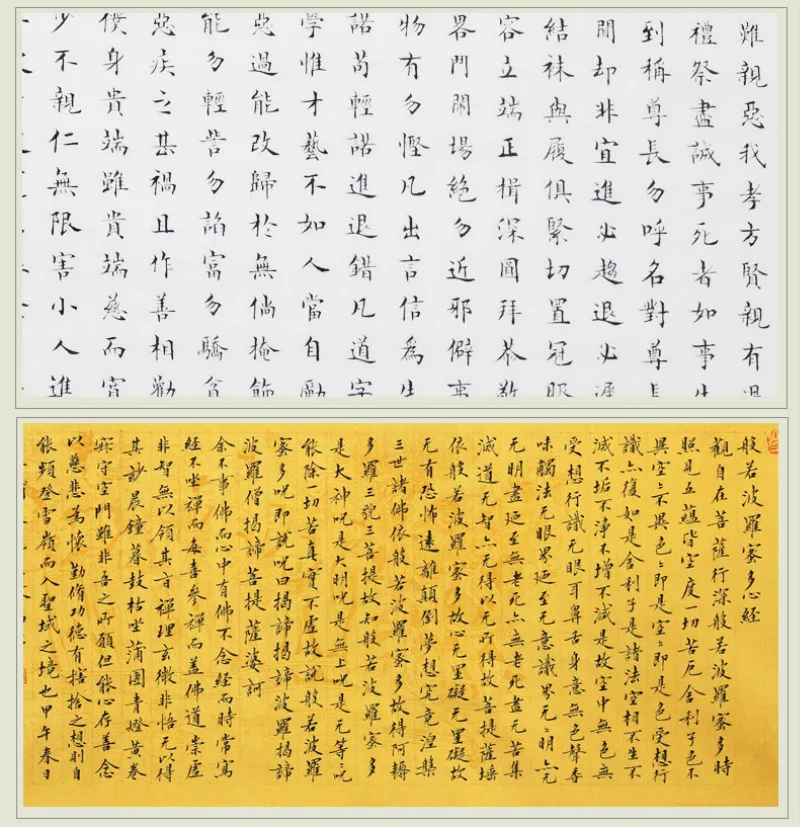 難親惡我孝方賢親有過
禮祭盡誠事死者如事生
到稱尊長勿呼名對尊長
間却非宜進必趨退必遲
結袜與履俱緊切置冠服
容立端正揖深圓拜恭敬
畧門鬧場絕勿近邪僻事
物有勿慳凡出言信為先
諾苟輕諾進退錯凡道字
學惟才藝不如人當自勵
惡過能改歸於無倘掩飾
能勿輕訾勿諂富勿驕貧
惡疾之甚禍且作善相勸
僕身貴端雖貴端慈而寬
少不親仁無限害小人進
般若波羅蜜多心經
觀自在菩薩行深般若波羅蜜多時
照見五蘊皆空度一切苦厄舍利子色不
異空空不異色色即是空空即是色受想行
識亦復如是舍利子是諸法空相不生不
滅不垢不淨不增不減是故空中無色無
受想行識无眼耳鼻舌身意無色聲香
味觸法无眼界廼至无意識界无无明亦无
无明盡廼至無老死亦無老死盡无苦集
滅道无智亦无得以无所得故菩提薩埵
依般若波羅蜜多故心无罣礙无罣礙故
无有恐怖遠離顛倒夢想究竟涅槃
三世諸佛依般若波羅蜜多故得阿耨
多羅三藐三菩提故知般若波羅蜜多
是大神呪是大明呪是無上呪是无等等呪
能除切苦真實不虛故說般若波羅
蜜多呪即說呪曰揭諦揭諦波羅揭諦
波羅僧揭諦菩提薩婆訶
余不事佛而心中有佛不念經而時常寫
經不坐禪而每喜參禪而蓋佛道崇虛
非智無以領其言禪理玄微非悟无以得
其妙晨鐘暮鼓枯坐蒲團青燈黃卷
寂守空門雖非吾之所願但能心存善念
以慈悲為懷勤脩功德有捨之想則自
能頻登雪嶺而入聖域之境也甲午春日